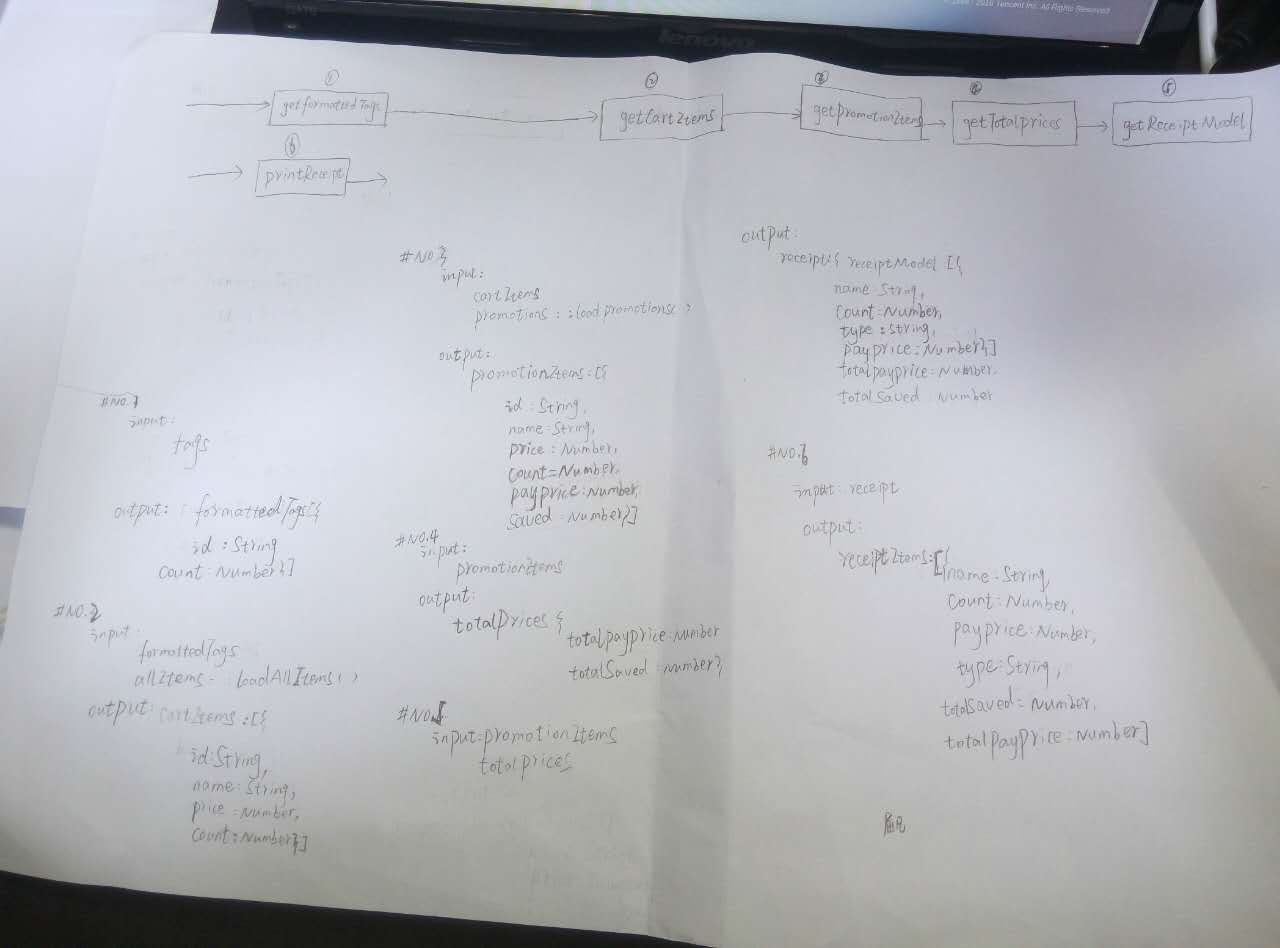 1998 - 2016 Tencent Inc. All Rights Reserved
lenovo
① ② ③ ④ ⑤
getformattedTags getCartItems getpromotionItems getTotalprices getReceiptModel
⑥
printReceipt
#NO.1
input:
tags
output: formattedTags[{
id : String
count: Number}]
#NO.2
input:
formattedTags
allItems- :loadAllItems()
output: cartItems:[{
id:String,
name:String,
price:Number,
count:Number}]
#NO.3
input:
cartItems
promotions : :loadpromotions( )
output:
promotionItems:[{
id:String,
name:String,
price:Number,
count=Number,
payprice:Number,
saved:Number}]
#NO.4
input:
promotionItems
output:
totalPrices {
totalpayprice:Number
totalSaved :number},
#NO.5
input:promotionItems
totalprices
output:
receipt:{ receiptModel [{
name:String,
count:Number,
type:String,
payprice:Number}]
totalpayprice:Number.
totalSaved:Number
#NO.6
input: receipt
output:
receiptItems:[{
name:String,
count:Number,
payprice:Number,
type:String,
totalSaved=Number,
totalpayprice:Number]